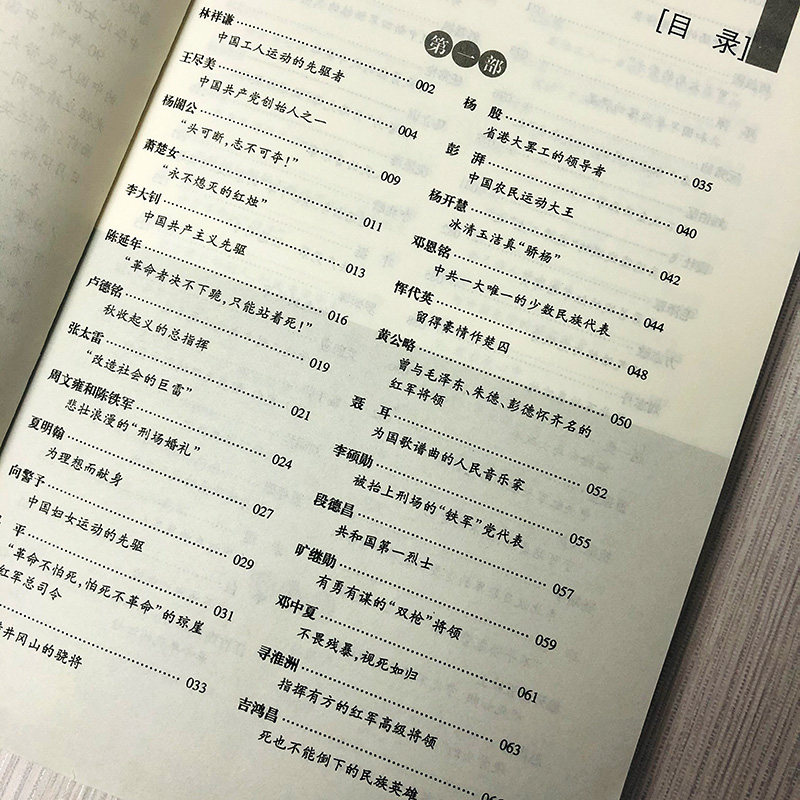 [目 录]
第一部
林祥谦 002
中国工人运动的先驱者
王尽美 004
中国共产党创始人之一
杨闇公 009
“头可断，志不可夺！”
萧楚女 011
“永不熄灭的红烛”
李大钊 013
中国共产主义先驱
陈延年 016
“革命者决不下跪，只能站着死！”
卢德铭 019
秋收起义的总指挥
张太雷 021
“改造社会的巨雷”
周文雍和陈铁军 024
悲壮浪漫的“刑场婚礼”
夏明翰 027
为理想而献身
向警予 029
中国妇女运动的先驱
平 031
“革命不怕死，怕死不革命”的琼崖
红军总司令
033
井冈山的骁将
杨 殷 035
省港大罢工的领导者
彭 湃 040
中国农民运动大王
杨开慧 042
冰清玉洁真“骄杨”
邓恩铭 044
中共一大唯一的少数民族代表
恽代英 048
留得豪情作楚囚
黄公略 050
曾与毛泽东、朱德、彭德怀齐名的
红军将领
聂 耳 052
为国歌谱曲的人民音乐家
李硕勋 055
被抬上刑场的“铁军”党代表
段德昌 057
共和国第一烈士
旷继勋 059
有勇有谋的“双枪”将领
邓中夏 061
不畏残暴，视死如归
寻淮洲 063
指挥有方的红军高级将领
吉鸿昌
死也不能倒下的民族英雄